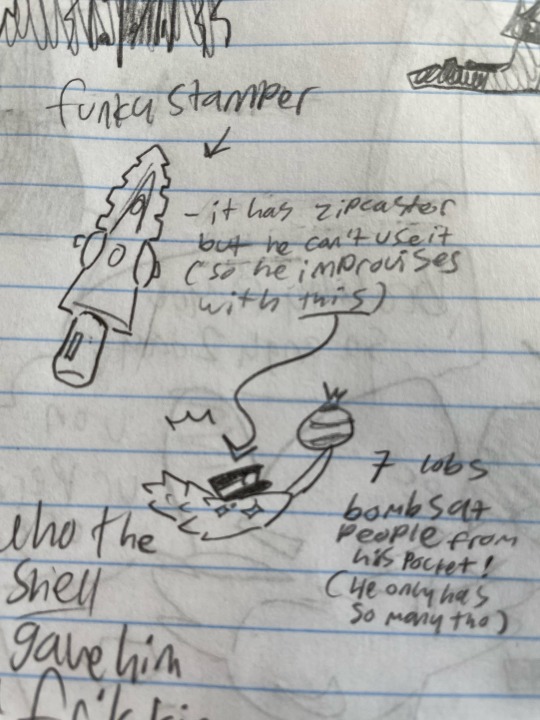 funky stamper
- it has zipcaster
but he can't use it
(so he improvises
with this)
7 lobs
bombs at
people from
his pocket!
(He only has
so many tho)
who the
Shell
gave him